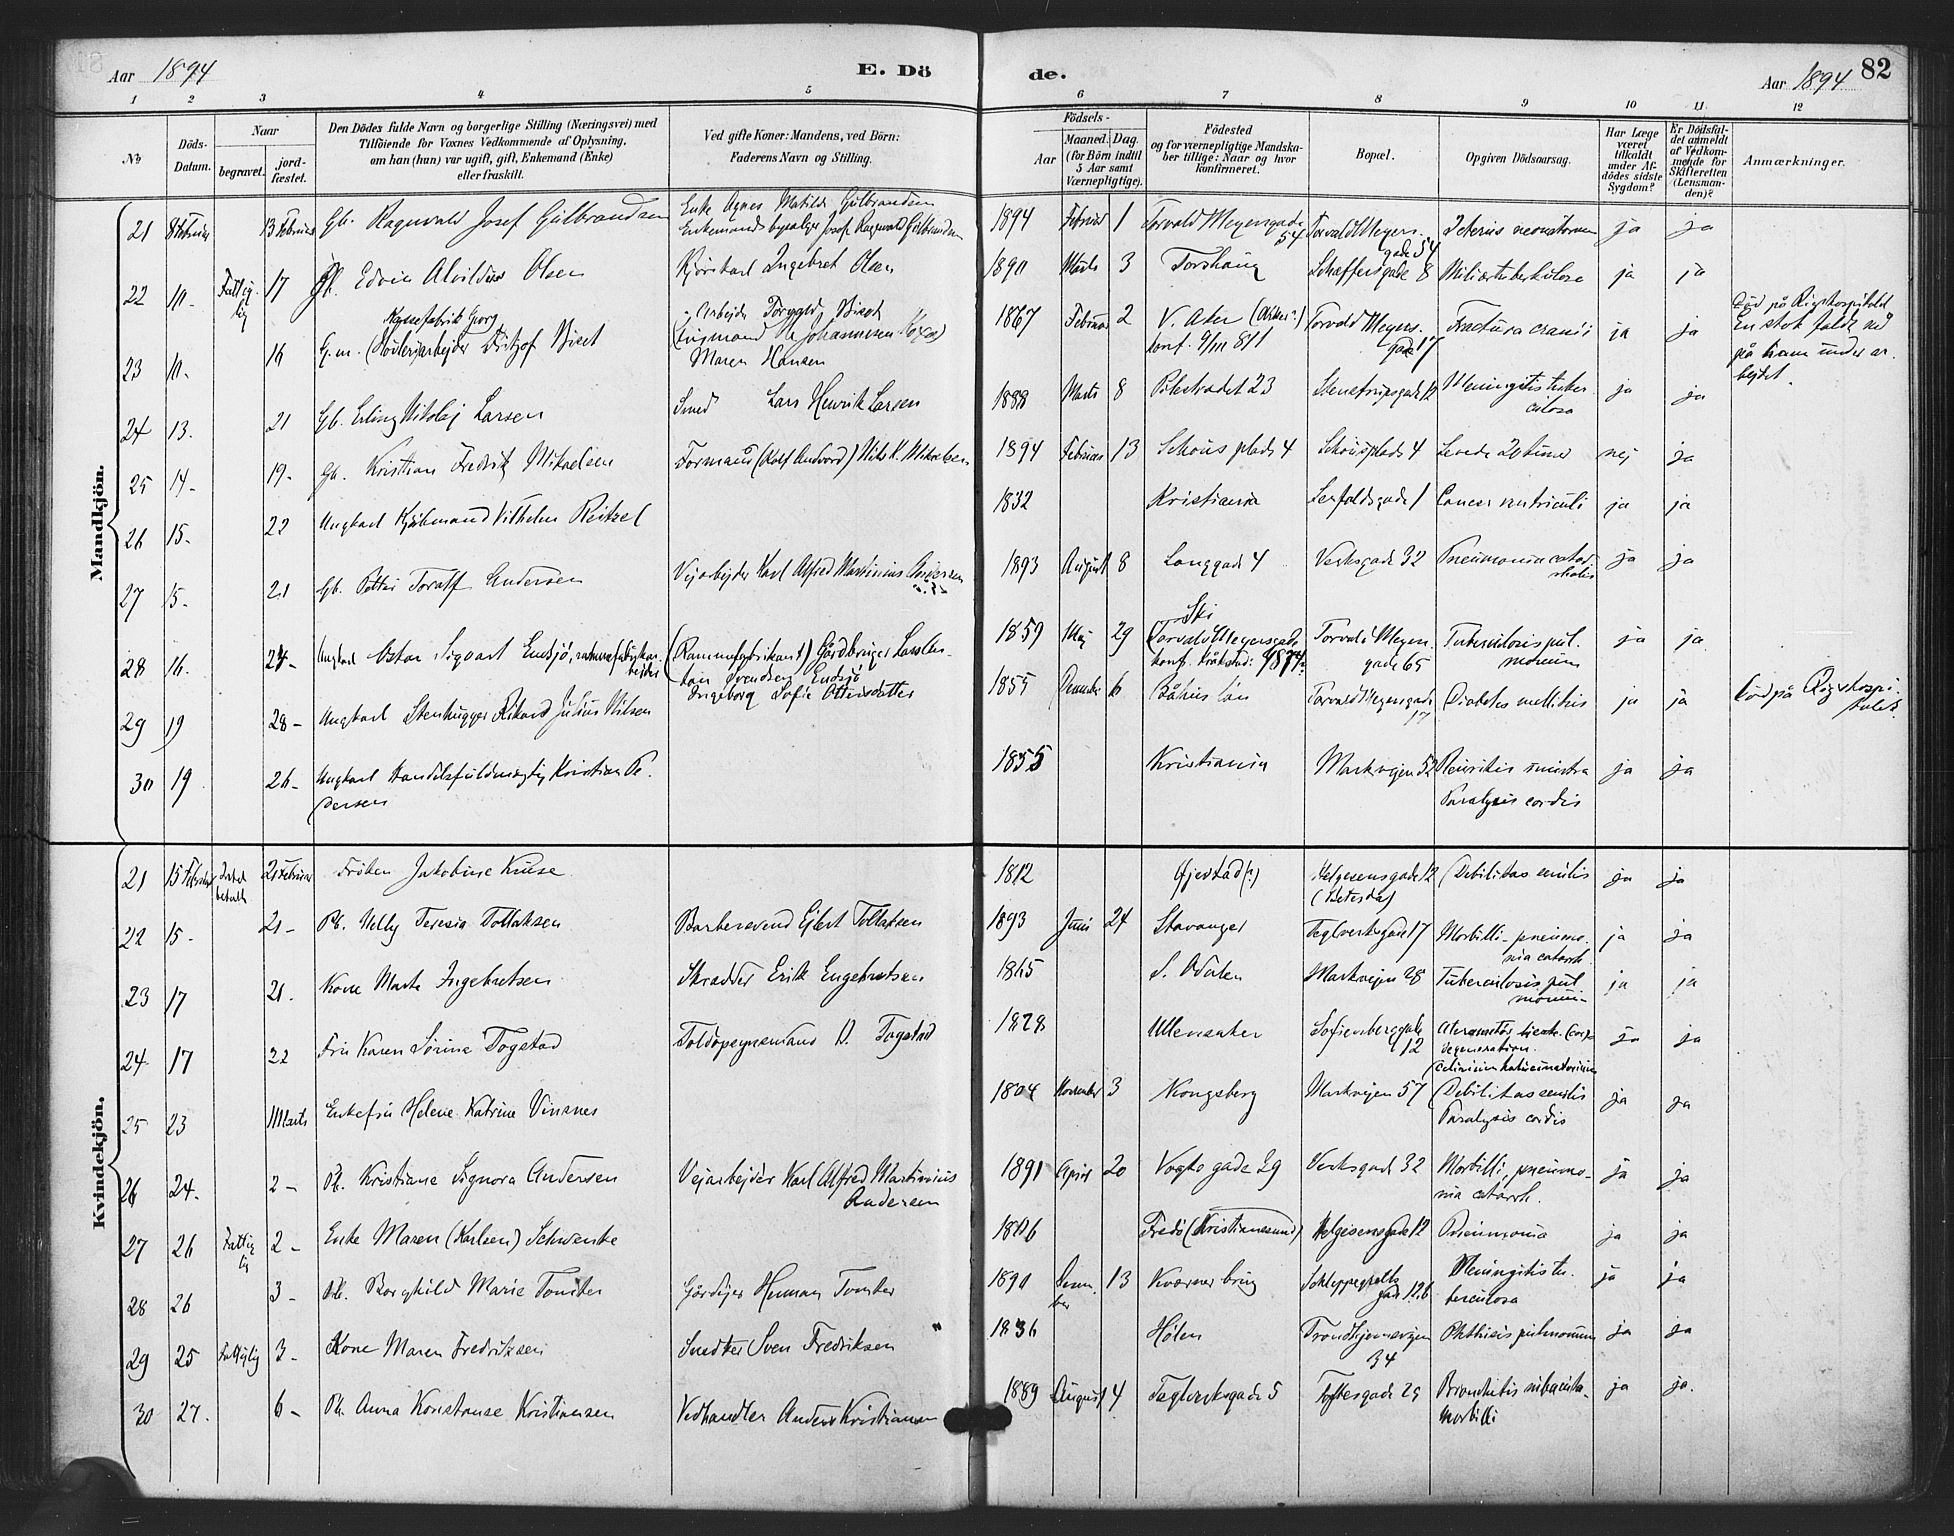 Aar 1894 E. Döde. Aar 1894 82
1 2 3 4 5 6 7 8 9 10 11 12
No Döds-Datum. Naar begravet. jord-fæstet.
Den Dödes fulde Navn og borgerlige Stilling (Næringsvei) med
Tilföiende for Voxnes Vedkommende af Oplysning,
om han (hun) var ugift, gift, Enkemand (Enke)
eller fraskilt.
Ved gifte Koner: Mandens, ved Börn:
Faderens Navn og Stilling.
Födsels-
Aar Maaned. Dag.
(for Börn indtil
5 Aar samt
Værnepligtige).
Födested
og for værnepligtige Mandska-
ber tillige: Naar og hvor
konfirmeret.
Bopæl.
Opgiven Dödsaarsag.
Har Læge
været
tilkaldt
under Af-
dödes sidste
Sygdom?
Er Dödsfal-
det anmeldt
af Vedkom-
mende for
Skifteretten
(Lensman-
den)?
Anmærkninger.
Mandkjön.
21 8 Februar 13 Februar Gb. Ragnvald Josef Gulbrandsen Enke Agnes Matilde Gulbrandsen 1894 Februar 1 Torvald Meyersgade 54 Torvald Meyers gade 54 Icterus neonatorum ja ja
Enkemands Josef Ragnvald Gulbrandsen
22 10. Fattiglig 17 Edvin Alvildus Olsen Kjørekarl Ingebret Olsen 1890 Marts 3 Torshaug Schæffersgade 8 Miliærtuberkulose ja ja
23 10. 16 G.m. (Høvleriarbejder Fritjof Arbejder 1867 Februar 2 V. Aker Torvald Meyers gade 17 Fractura cranii ja ja Død på Rigshospitalet
konf.
Maren Hansen
En stok faldt ned
på ham under ar-
bejdet.
24 13. 21 Gb. Erling Nikolaj Larsen Smed Lars Henrik Larsen 1888 Marts 8 Pilestrædet 23 Stenstrupsgade 12 Meningitis tuber-
culosa ja ja
25 14- 19- Gb. Kristian Fredrik Mikaelsen Formand Mikaelsen 1894 Februar 13 Schous plads 4 Schousplads 4 Levede 20 timer nej ja
26 15. 22 Ungkarl Kjøbmand Vilhelm Reitzel 1832 Kristiania 1 Cancer ventriculi ja ja
27 15- 21 Gb. Petter Toralf Andersen Vejarbejder Karl Alfred Martinius Andersen 1893 August 8 Langgade 4 Verksgade 32 Pneumonia catar-
rhalis ja ja
28 16. 24- Ungkarl Oskar Sigvart Endsjö, (Rammefabrikant) Gårdbruger 1859 Maj 29 Ski Torvald Meyers gade 65 Tuberculosis pul-
monum ja ja
Svendsen Endsjö
Ingeborg Sofie Ottersdatter
(Torvald Meyersgade
konf. Kråkstad 1874.
29 19 28- Ungkarl Stenhugger Rikard Julius Nilsen 1855 December 6 Båhus län Torvald Meyersgade 17 Diabetes mellitus ja ja Død på Rigshospi-
talet
30 19 26- Ungkarl Handelsfuldmægtig Kristian Pe-
dersen 1855 Kristiania Markvejen 52 Pleuritis sinistra
Paralysis cordis ja ja
Kvindekjön.
21 15 Februar 21 Februar Frøken Jakobine Kruse 1812 Øjestad (?) Helgesensgade 12
(Betesda) Debilitas senilis ja ja
22 15- 21- Pb. Nelly Teresia Tollaksen Barbersvend Ejlert Tollaksen 1893 Juni 24 Stavanger Teglverksgade 17 Morbilli- pneumo-
nia catarrh. ja ja
23 17 21. Kone Marte Ingebretsen Skrædder Erik Engebretsen 1865 S. Odalen Markvejen 28 Tuberculosis pul-
monum ja ja
24 17 22 Fru Karen Sørine Togstad Toldopsynsmand O. Togstad 1828 Ullensaker Sofienberggade 12 degeneration. ja ja
25 23 1 Marts Enkefru Helene Katrine Vinsnes 1804 November 3 Kongsberg Markvejen 57 Debilitas senilis
Paralysis cordis ja ja
26 24. 2- Pb. Kristiane Signora Andersen Vejarbejder Karl Alfred Martinius
Andersen 1891 April 20 Vogts gade 29 Verksgade 32 Morbilli, pneumo-
nia catarrh. ja ja
27 26 Fattiglig 2- Enke Maren (Karlsen) Schwenke 1806 Fredø (Kristianssund) Helgesensgade 12 Pneumonia ja ja
28 26 3- Pb. Borghild Marie Tomter Gårdejer Herman Tomter 1890 13 Kværner brug Schleppegrells
gade Meningitis tu-
berculosa ja ja
29 25 Fattiglig 3- Kone Maren Fredriksen Snedker Sven Fredriksen 1836 Hølen Trondhjemsvejen
34 Phthisis pulmonum ja ja
30 27. 6- Pb. Anna Konstanse Kristiansen Vedhandler Anders Kristiansen 1889 August 4 Teglverksgade 5 Toftesgade 29 Bronchitis subacuta-
Morbilli ja ja.